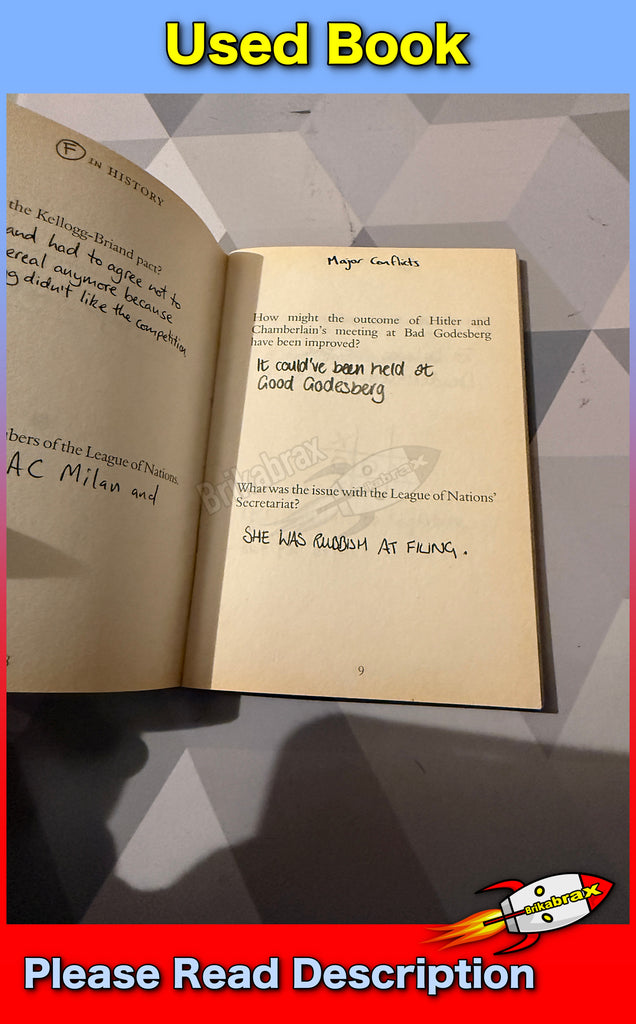 Used Book
F IN HISTORY
the Kellogg-Briand pact?
and had to agree not to
ereal anymore because
g didn't like the competition
bers of the League of Nations.
AC Milan and
Major Conflicts
How might the outcome of Hitler and
Chamberlain's meeting at Bad Godesberg
have been improved?
It could've been held at
Good Godesberg
Brikabrax
Brikabrax
What was the issue with the League of Nations'
Secretariat?
SHE WAS RUBBISH AT FILING.
9
Brikabrax
Please Read Description